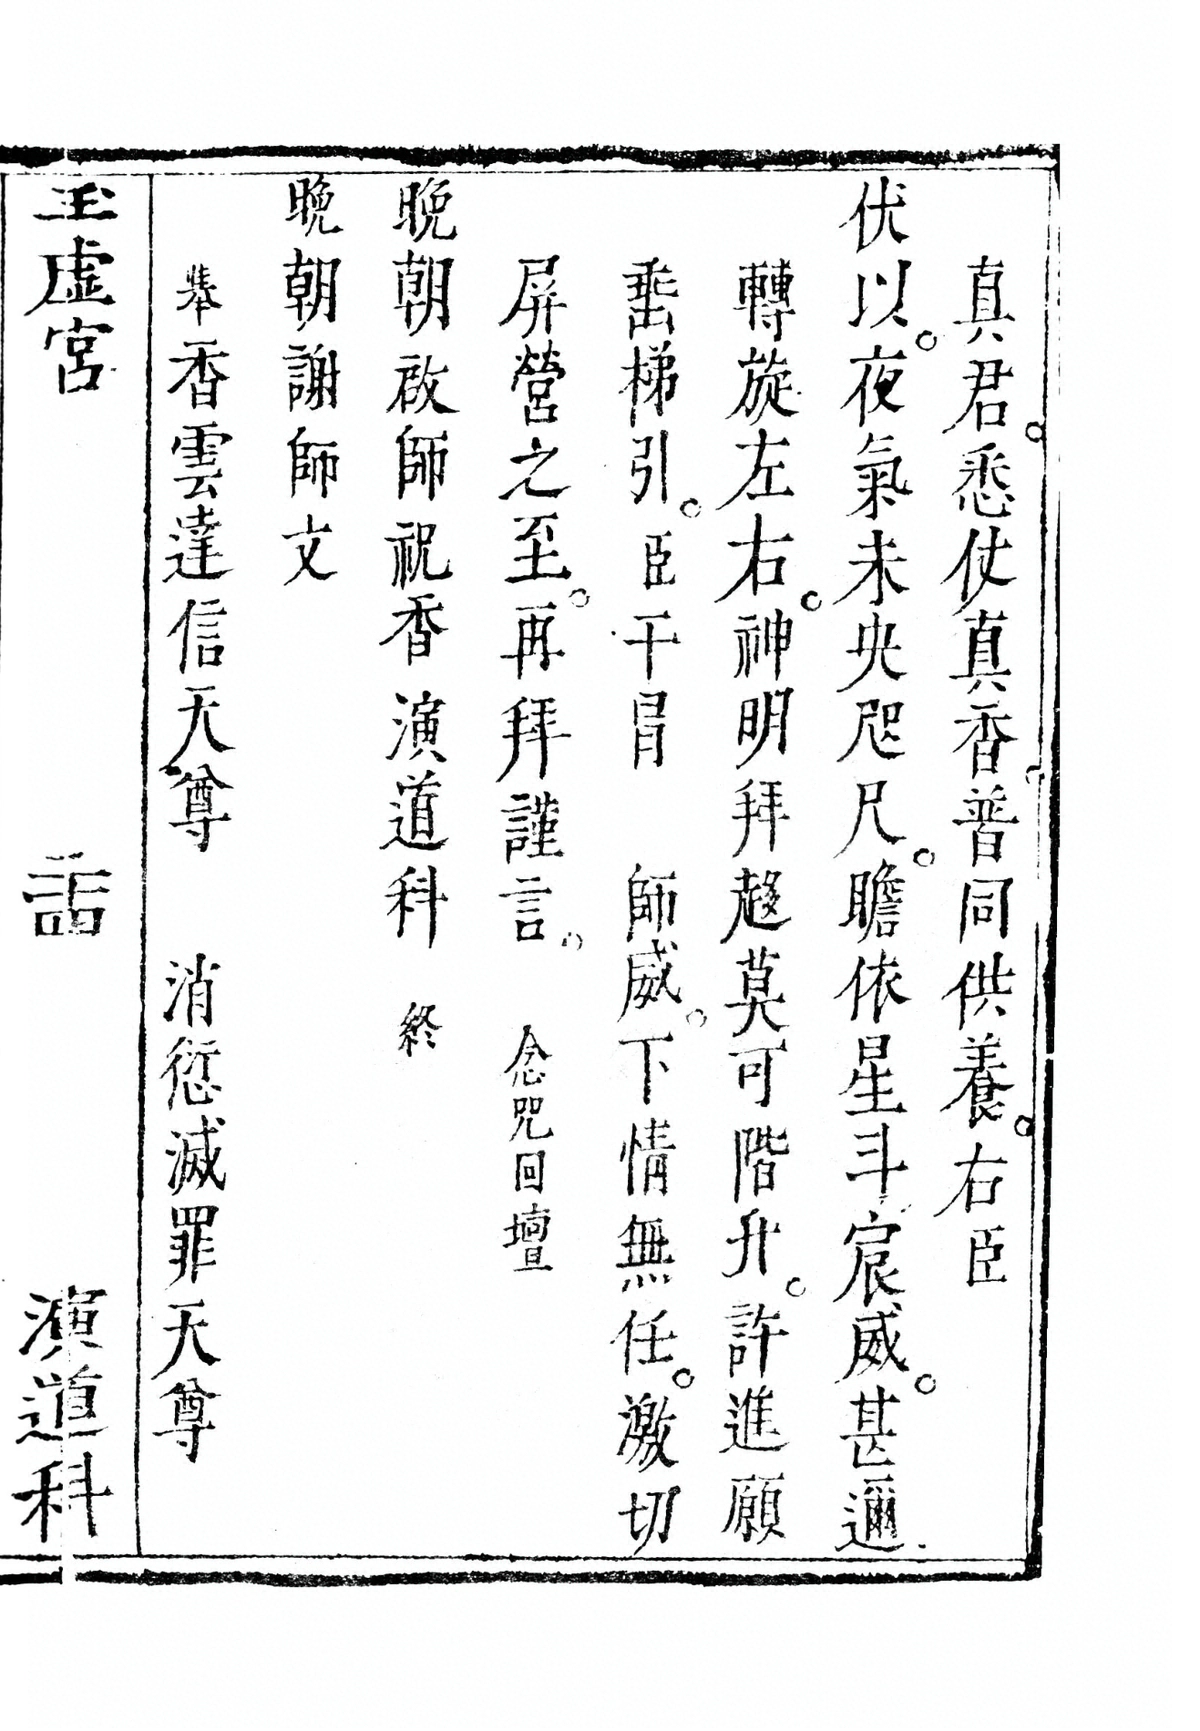 真君。悉仗真香。普同供養。右臣
伏以。夜氣未央。咫尺。瞻依星斗。宸威。甚邇
轉旋左右。神明拜趨莫可階升。許進願
垂梯引。臣干冒　師威。下情無任。激切
屏營之至。再拜謹言。念咒回壇
晚朝啟師祝香演道科　終
晚朝謝師文
舉香雲達信天尊　消愆滅罪天尊
玉虛宮　演道科